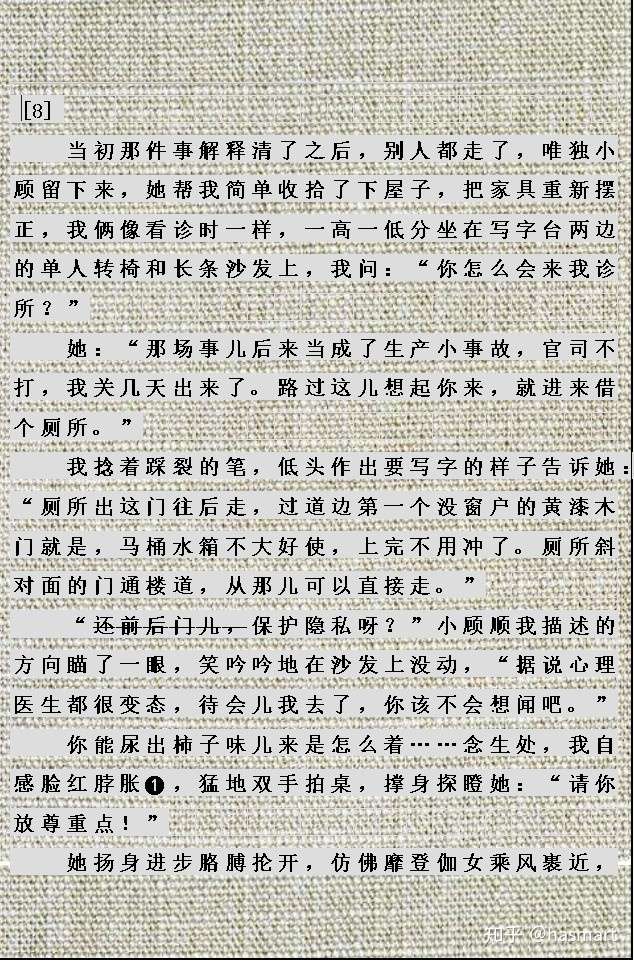 [8]
当初那件事解释清了之后，别人都走了，唯独小
顾留下来，她帮我简单收拾了下屋子，把家具重新摆
正，我俩像看诊时一样，一高一低分坐在写字台两边
的单人转椅和长条沙发上，我问：“你怎么会来我诊
所？”
她：“那场事儿后来当成了生产小事故，官司不
打，我关几天出来了。路过这儿想起你来，就进来借
个厕所。”
我捻着踩裂的笔，低头作出要写字的样子告诉她：
“厕所出这门往后走，过道边第一个没窗户的黄漆木
门就是，马桶水箱不大好使，上完不用冲了。厕所斜
对面的门通楼道，从那儿可以直接走。”
“还前后门儿，保护隐私呀？”小顾顺我描述的
方向瞄了一眼，笑吟吟地在沙发上没动，“据说心理
医生都很变态，待会儿我去了，你该不会想闻吧。”
你能尿出柿子味儿来是怎么着……念生处，我自
感脸红脖胀❶，猛地双手拍桌，撑身探瞪她：“请你
放尊重点！”
她扬身进步胳膊抡开，仿佛摩登伽女乘风裹近，
知乎 @hasmart